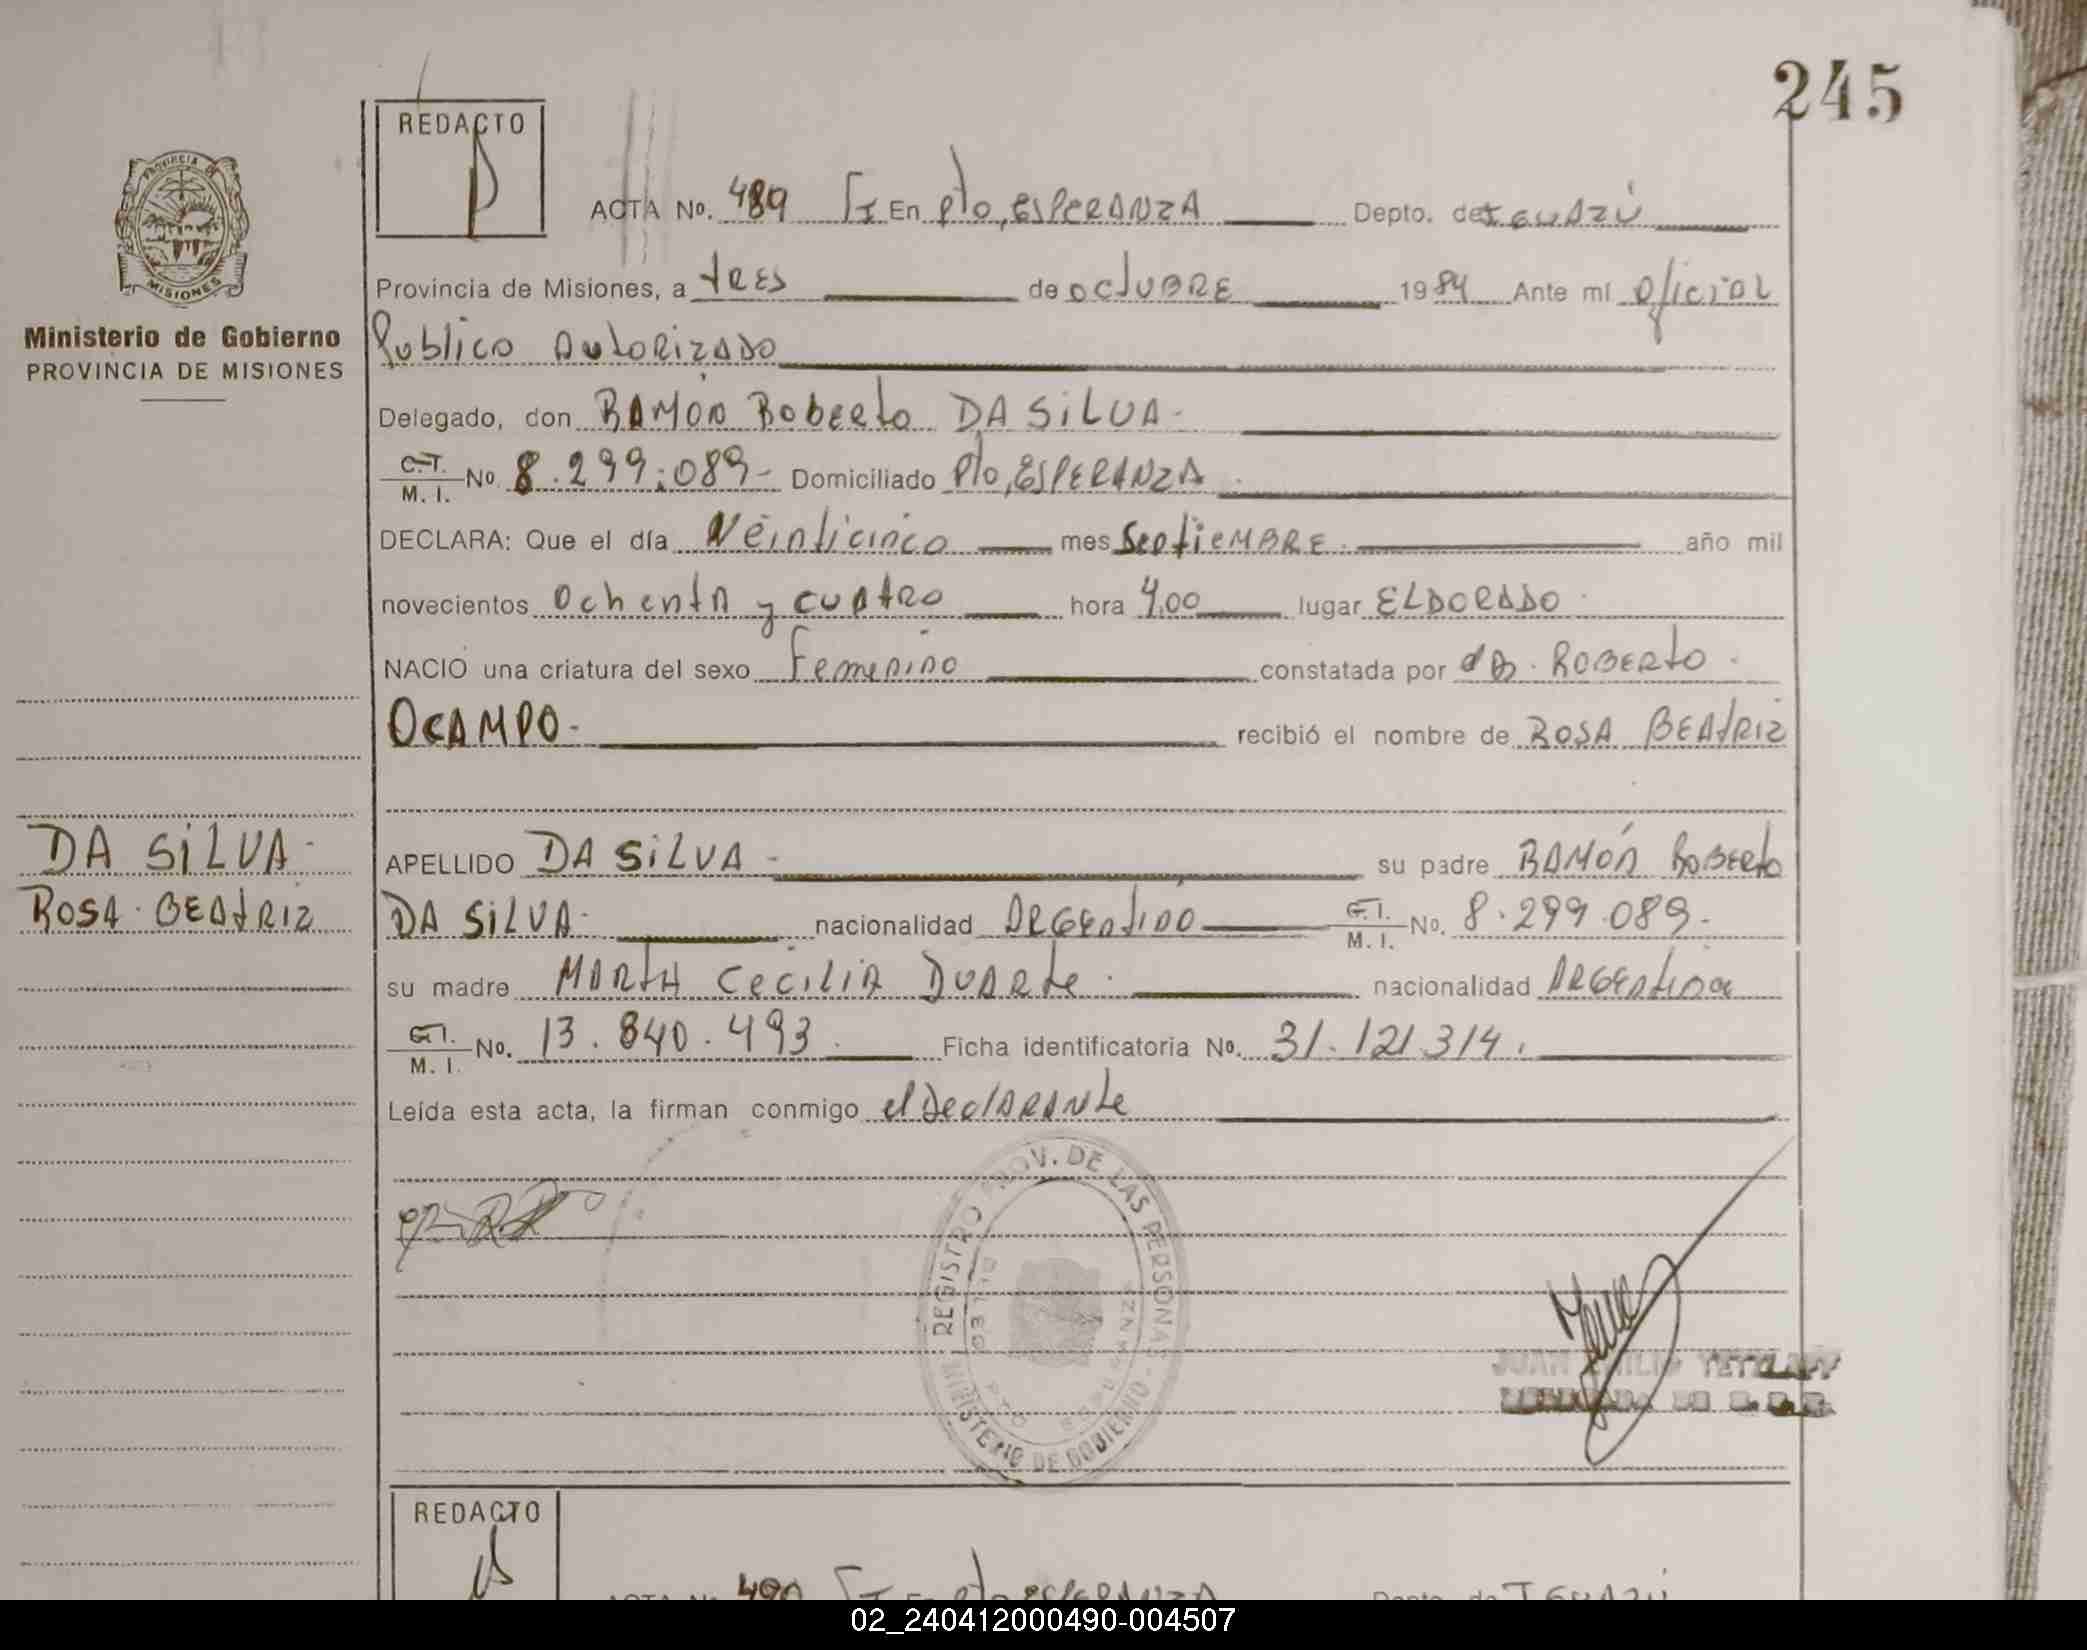 245
REDACTO
ACTA No. 489 TI En Pto, ESPERANZA Depto. de IGUAZÚ
PROVINCIA DE
MISIONES
Ministerio de Gobierno
PROVINCIA DE MISIONES
Provincia de Misiones, a tres de octubre 1984 Ante mí oficial
Publico Autorizado
Delegado, don RAMÓN Roberto DA SILVA-
C.I. M. I. No. 8.299.089- Domiciliado Pto, ESPERANZA
DECLARA: Que el día Veinticinco mes Septiembre año mil
novecientos ochenta y cuatro hora 4,00 lugar ELDORADO
NACIO una criatura del sexo Femenino constatada por dR. ROBERTO
OCAMPO- recibió el nombre de ROSA BEATRIZ
DA SILVA-
ROSA BEATRIZ
APELLIDO DA SILVA - su padre RAMÓN Roberto
DA SILVA- nacionalidad ARGENTINO C.I. M. I. No. 8.299.089-
su madre MARTA Cecilia DUARTE nacionalidad ARGENTINA
C.I. M. I. No. 13.840.493 Ficha identificatoria No. 31.121.314.
Leída esta acta, la firman conmigo el DeclARANte
REGISTRO PROV. DE LAS PERSONAS
MINISTERIO DE GOBIERNO
JUAN EMILIO
REDACTO
ACTA No. 490 TI En Pto ESPERANZA Depto. de IGUAZÚ
02_240412000490-004507